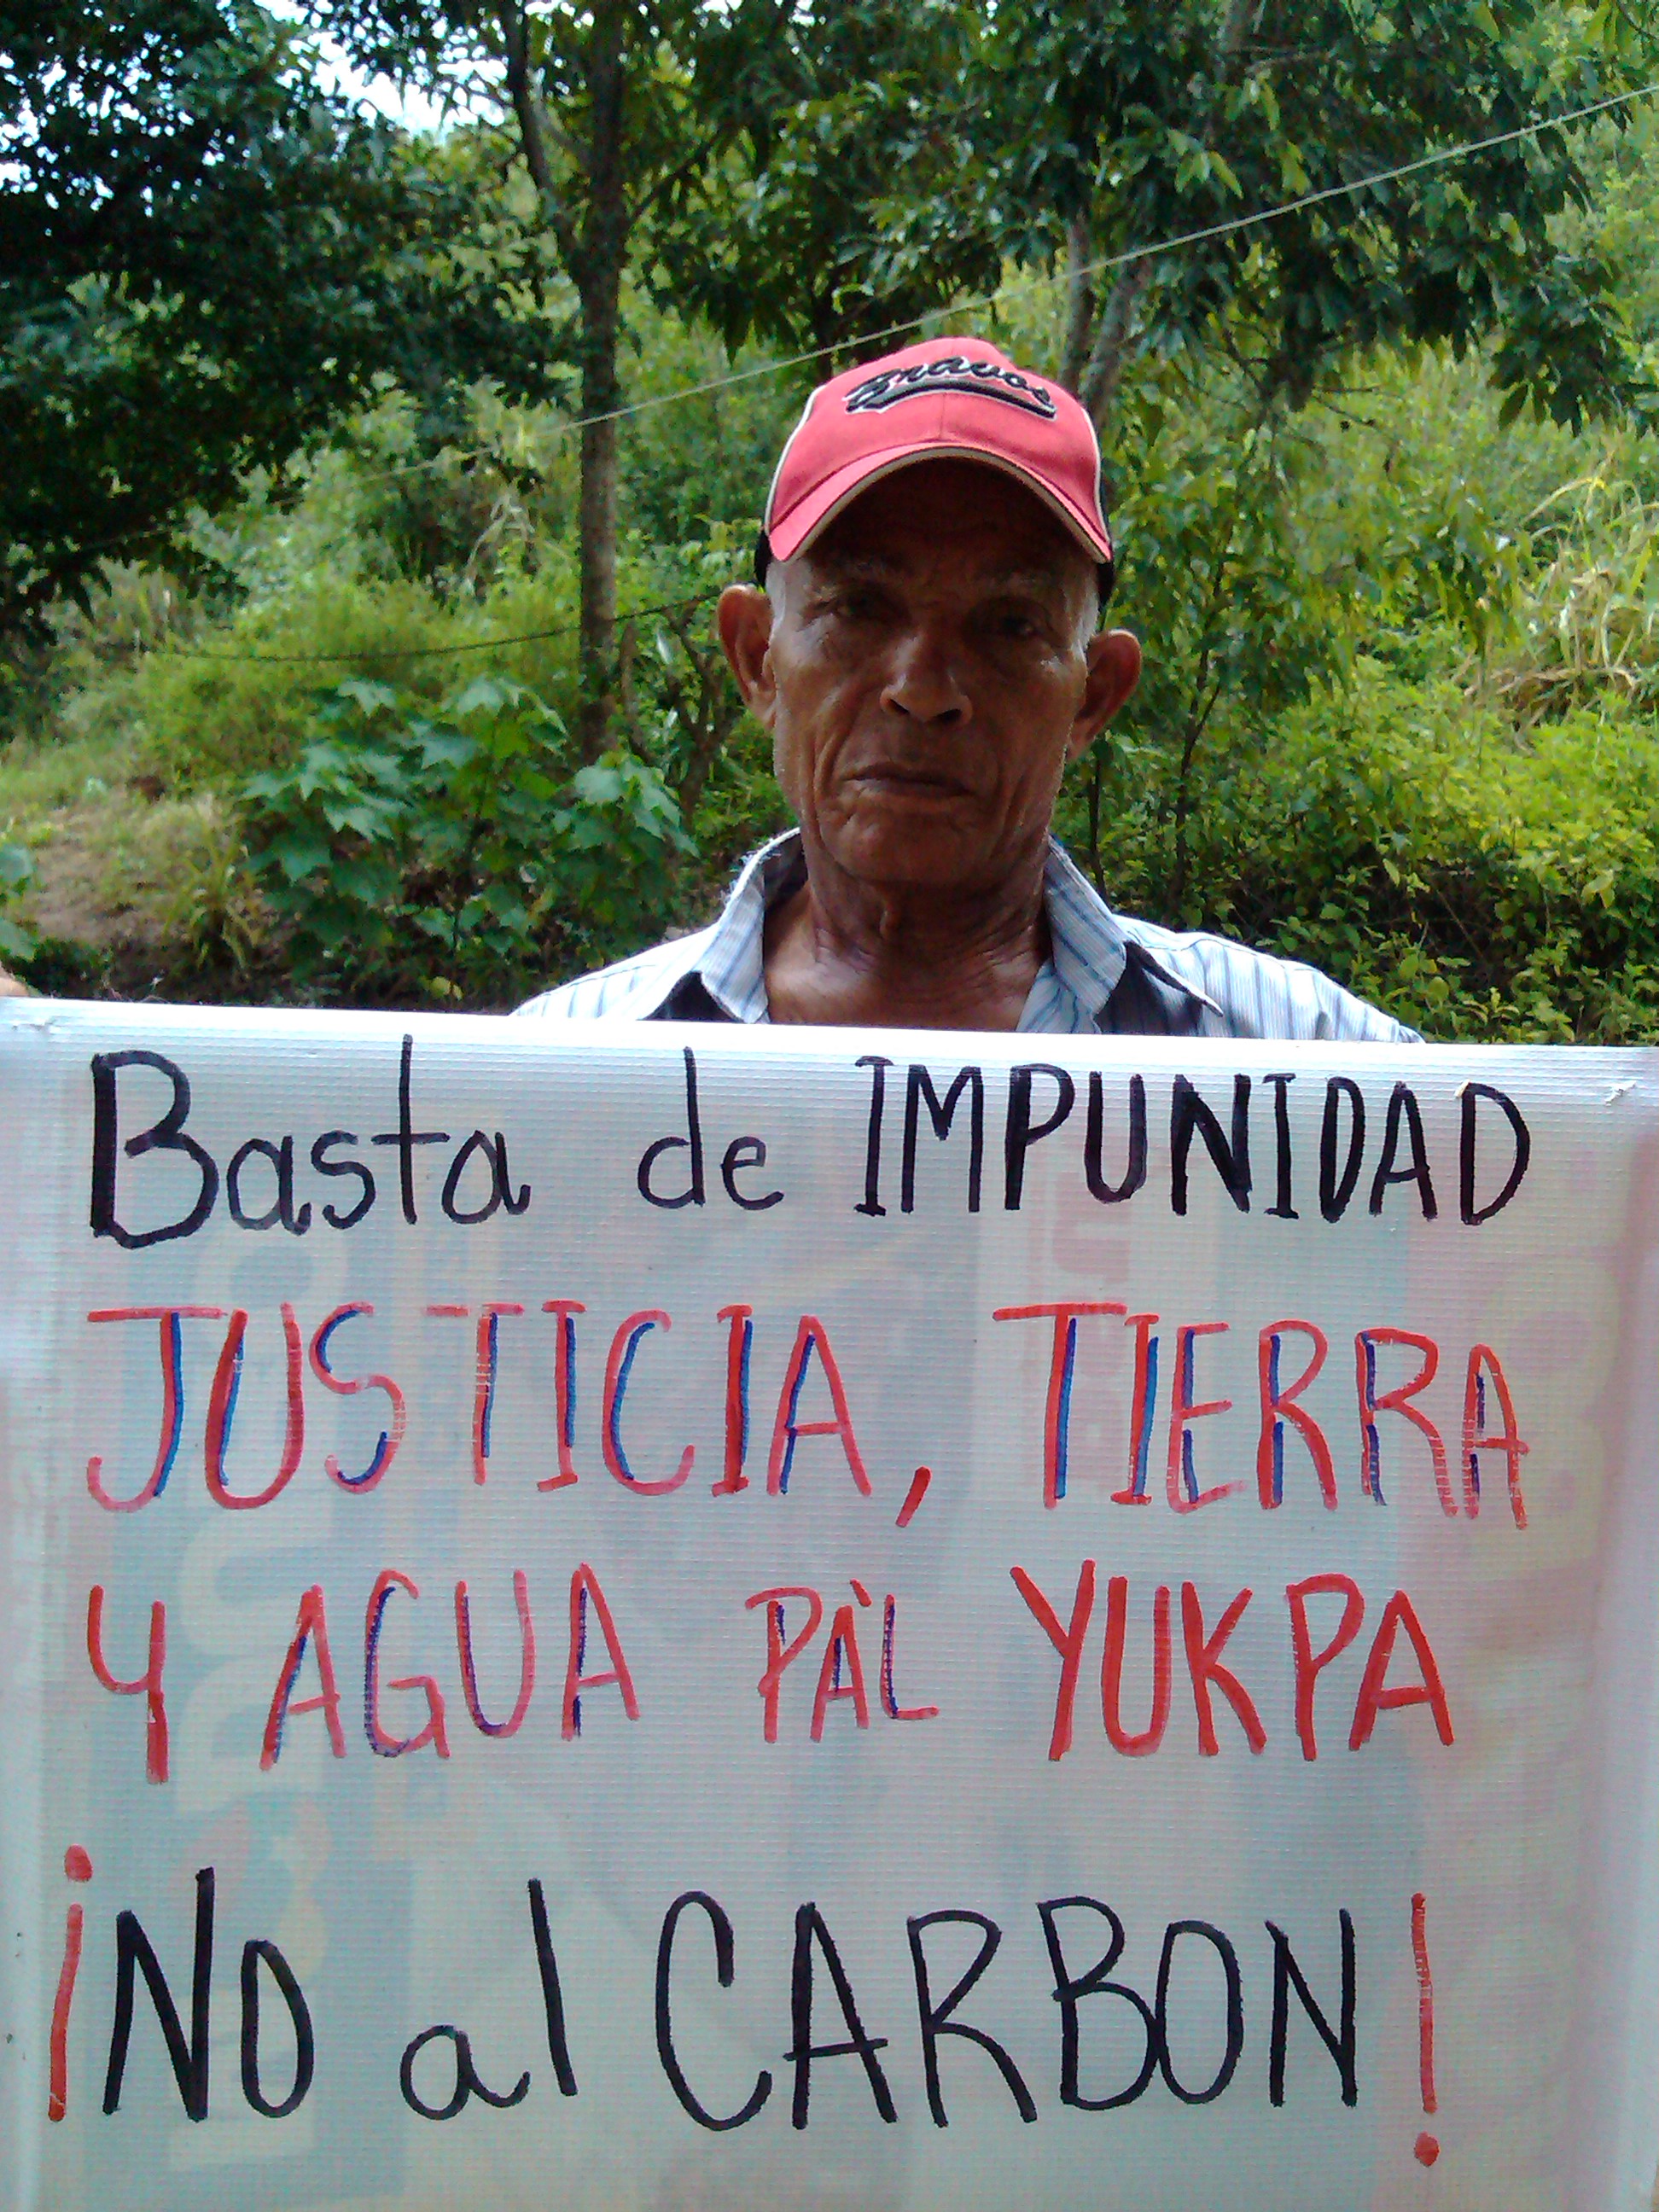 Bravos
Basta de IMPUNIDAD
JUSTICIA, TIERRA
Y AGUA PA'L YUKPA
¡NO al CARBON!